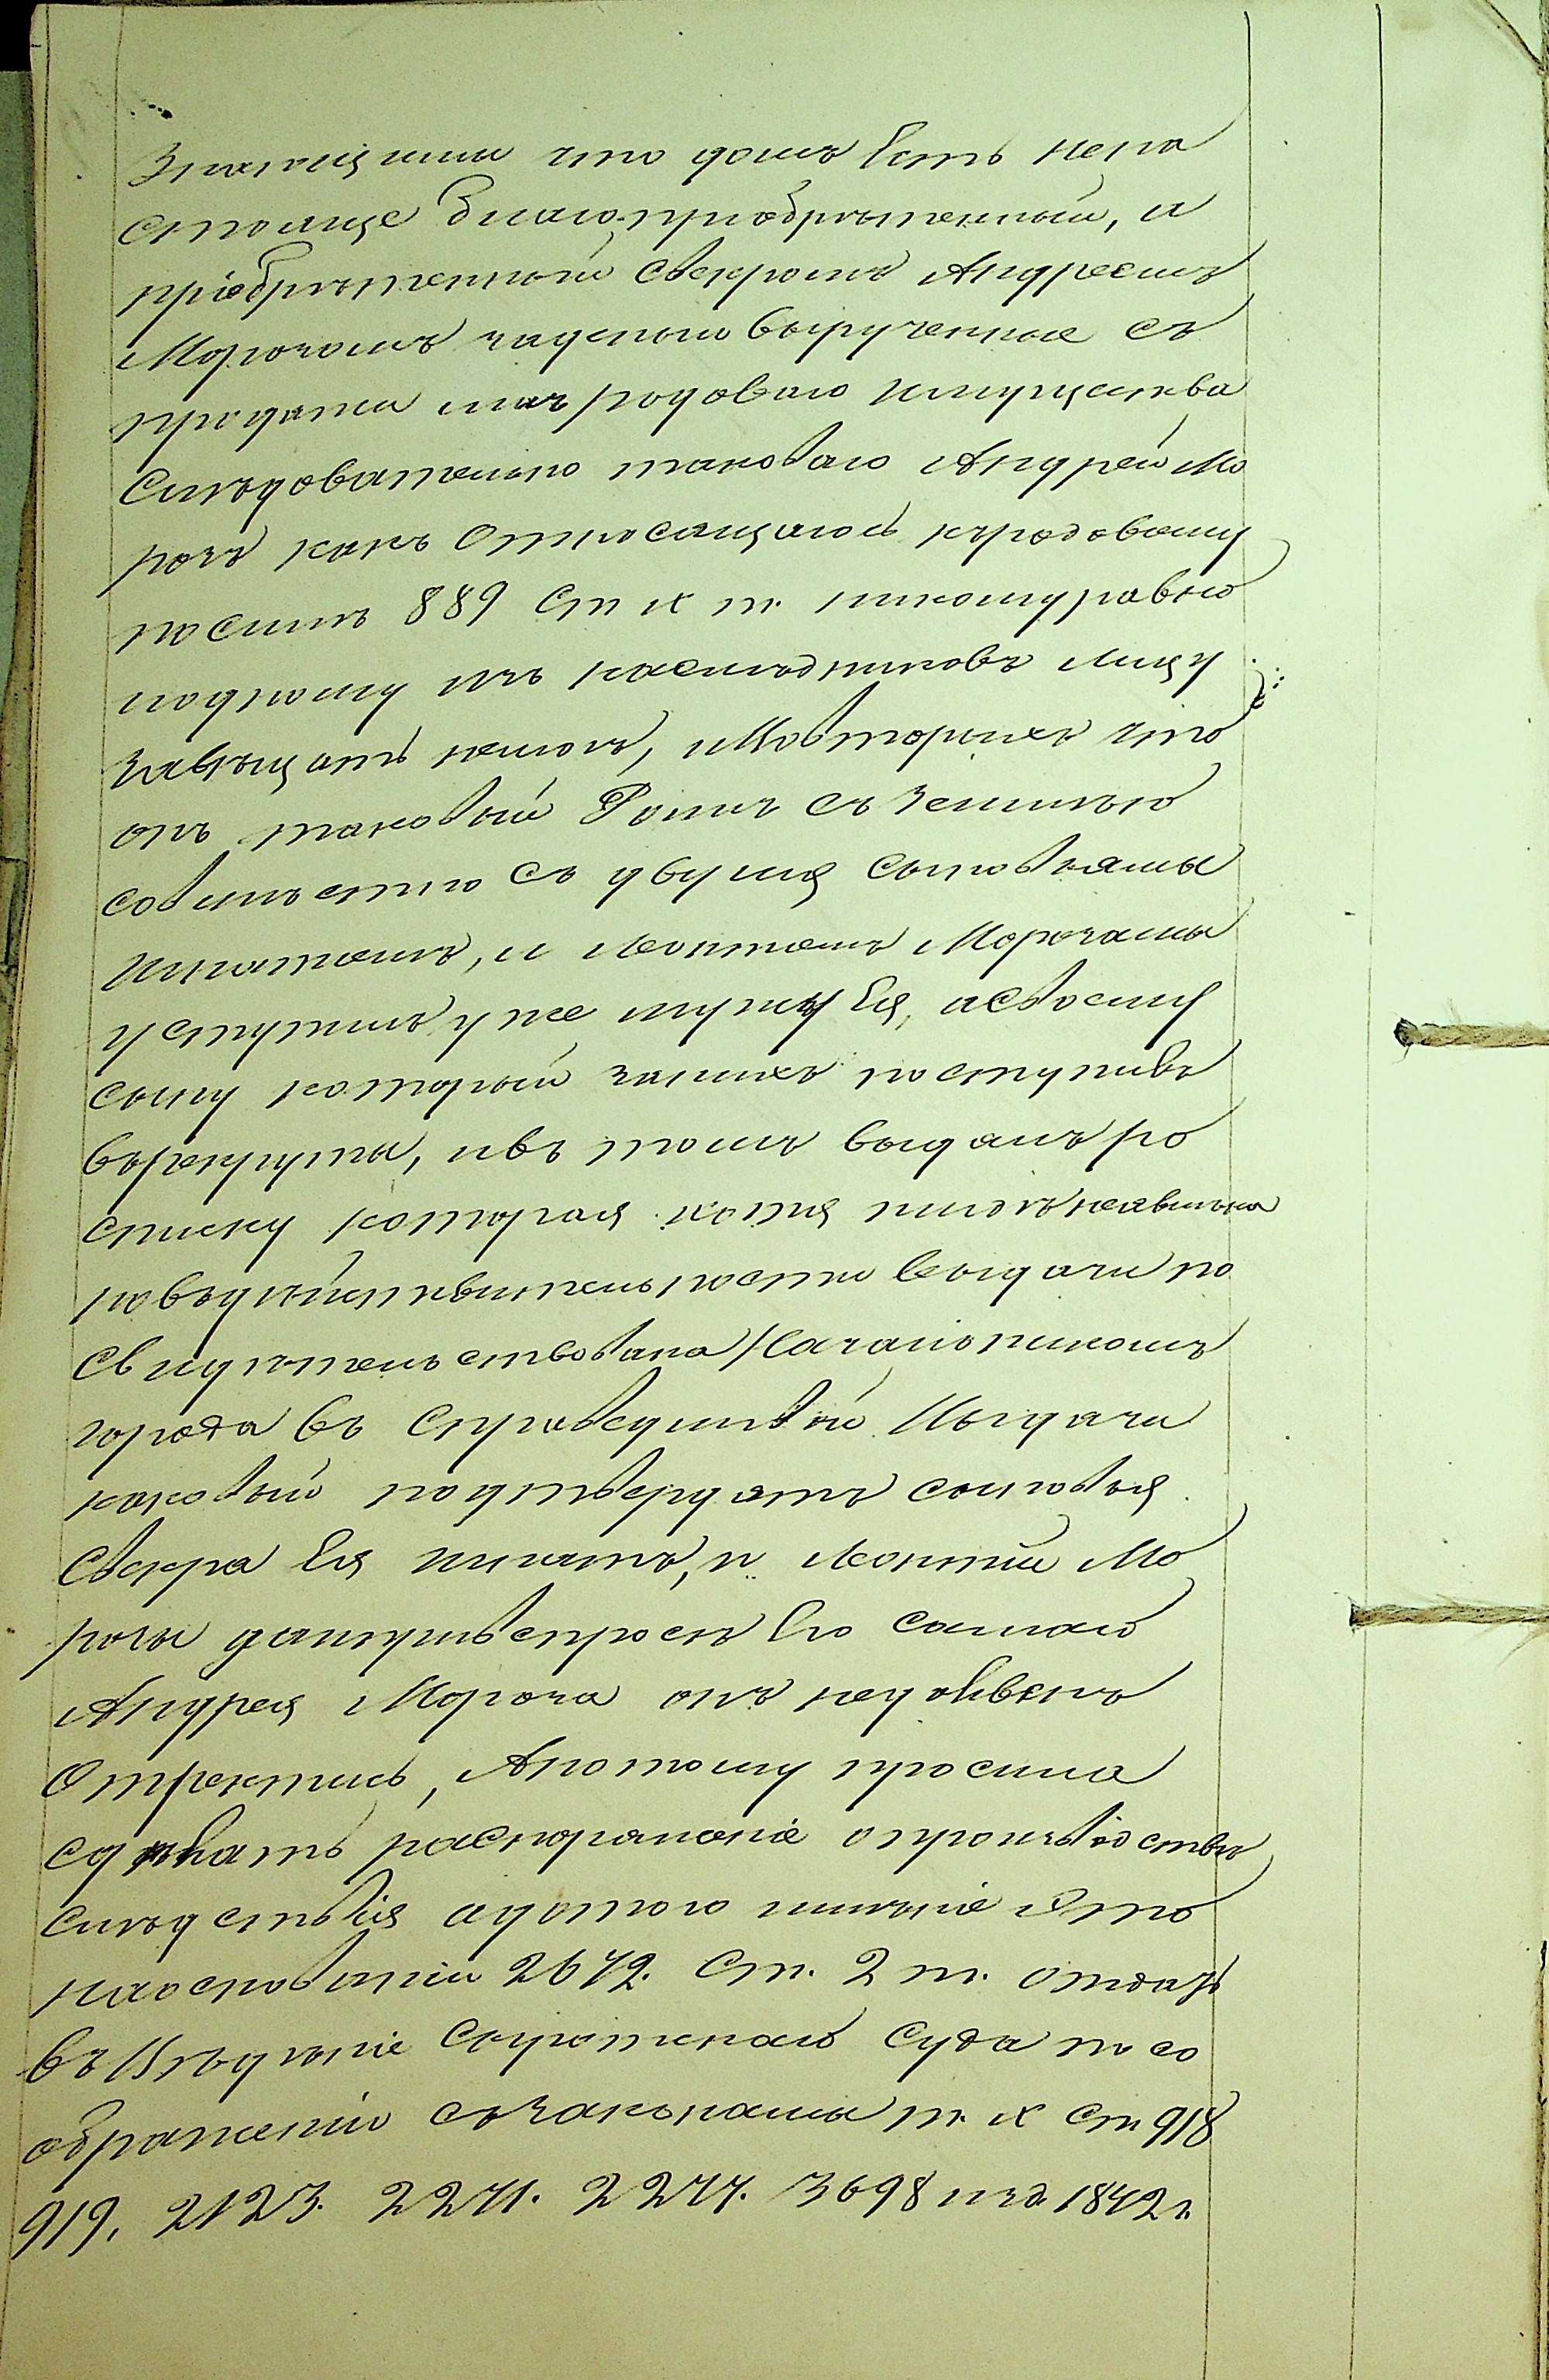 что домъ есть нена
стояще благо-пріобрѣтенный, и
пріобрѣтенный свекромъ Андреемъ
Морозомъ вырученные съ
продажи родоваго имущества
Слѣдовательно таковаго Андрей Мо
розъ какъ Относящагось къродовому
посилѣ 889 Ст X т. никому равно
иодному изъ наслѣдниковъ лицу
завѣщать немогъ, иВовторыхъ что
онъ таковый Домъ съ Землею
совмѣстно съ двумя сыновьямы
Игнатомъ, и Леонтіемъ Морозамы
уступилъ уже мужу Ея, асвоему
сыну который занихъ поступивъ
върекруты, ивъ томъ выдалъ ро
списку которая хотя
новъдѣйствительности выдачи по
Свидѣтельствована Начальникомъ
города въ справедливой Выдачи
каковый подтвердятъ сыновья
Свекра Ея Игнатъ, и Леонтій Мо
розы спросъ Его самаго
Андрея Мороза онъ недолженъ
Отректись, Апотому просила
сдѣлать распоряженіе опроизводствѣ
слѣдствія адотого имѣніе Это
наоснованіи 2672. Ст. 2 т. отдать
въ Вѣдѣніе Сиротскаго Суда по со
ображеніи съзаконамы т. X Ст. 918
919, 2123. 2271. 2277. 3698 изд. 1842 г.